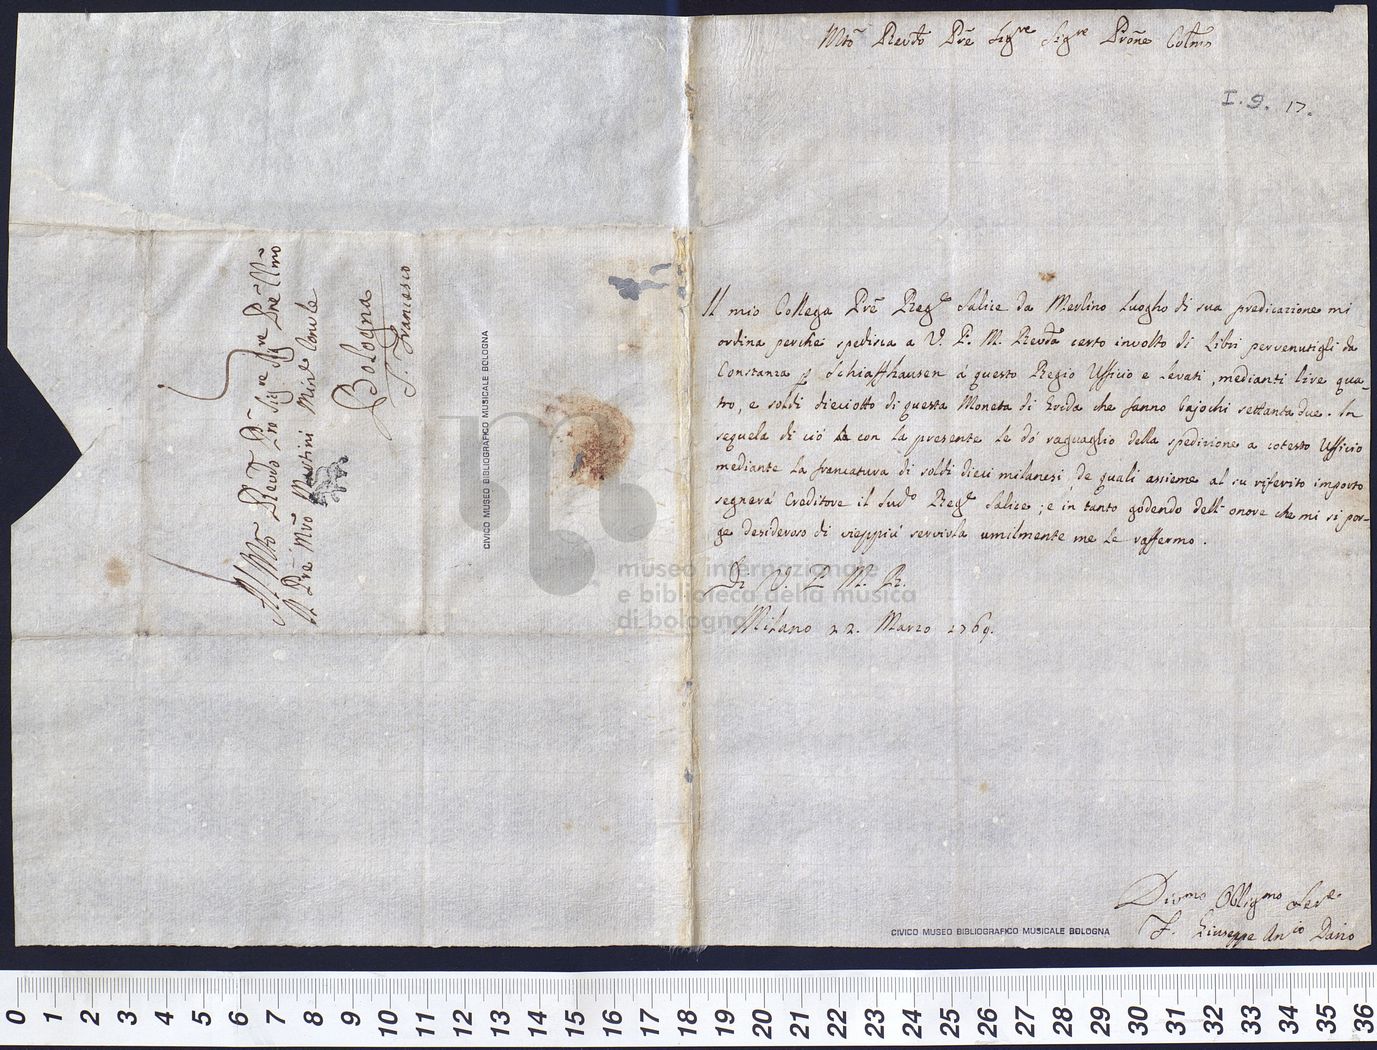 Al Mto Revdo Pre Sigre Sigre Pne Cllmo
Il Pre Mro Martini Minle Conle
Bologna
S. Francesco
CIVICO MUSEO BIBLIOGRAFICO MUSICALE BOLOGNA
Mto Revdo Pre Sigre Sigre Prone Colmo
I. 9. 17.
Il mio Collega Pre Regte Salice da Merlino luogho di sua predicazione mi
ordina perchè spedisca a V. P. M. Revda certo involto di Libri pervenutigli da
Constanza p Schiaffhausen à questo Regio Ufficio e levati, medianti lire qua-
tro, e soldi dieciotto di questa Moneta di Grida che fanno Bajochi settanta due. In
sequela di ciò con la presente le dò raguaglio della spedizione a cotesto Ufficio
mediante la francatura di soldi dieci milanesi, de quali assieme al su riferito importo
segnerà Creditore il sudo Regte Salice; e in tanto godendo dell' onore che mi si por-
ge desideroso di vieppiù servirla umilmente me le raffermo.
Di V. P. M. R.
Milano 22. Marzo 1769.
Divmo Obligmo Serre
F. Giuseppe Anio Dario
CIVICO MUSEO BIBLIOGRAFICO MUSICALE BOLOGNA
museo internazionale
e biblioteca della musica
di bologna
0 1 2 3 4 5 6 7 8 9 10 11 12 13 14 15 16 17 18 19 20 21 22 23 24 25 26 27 28 29 30 31 32 33 34 35 36